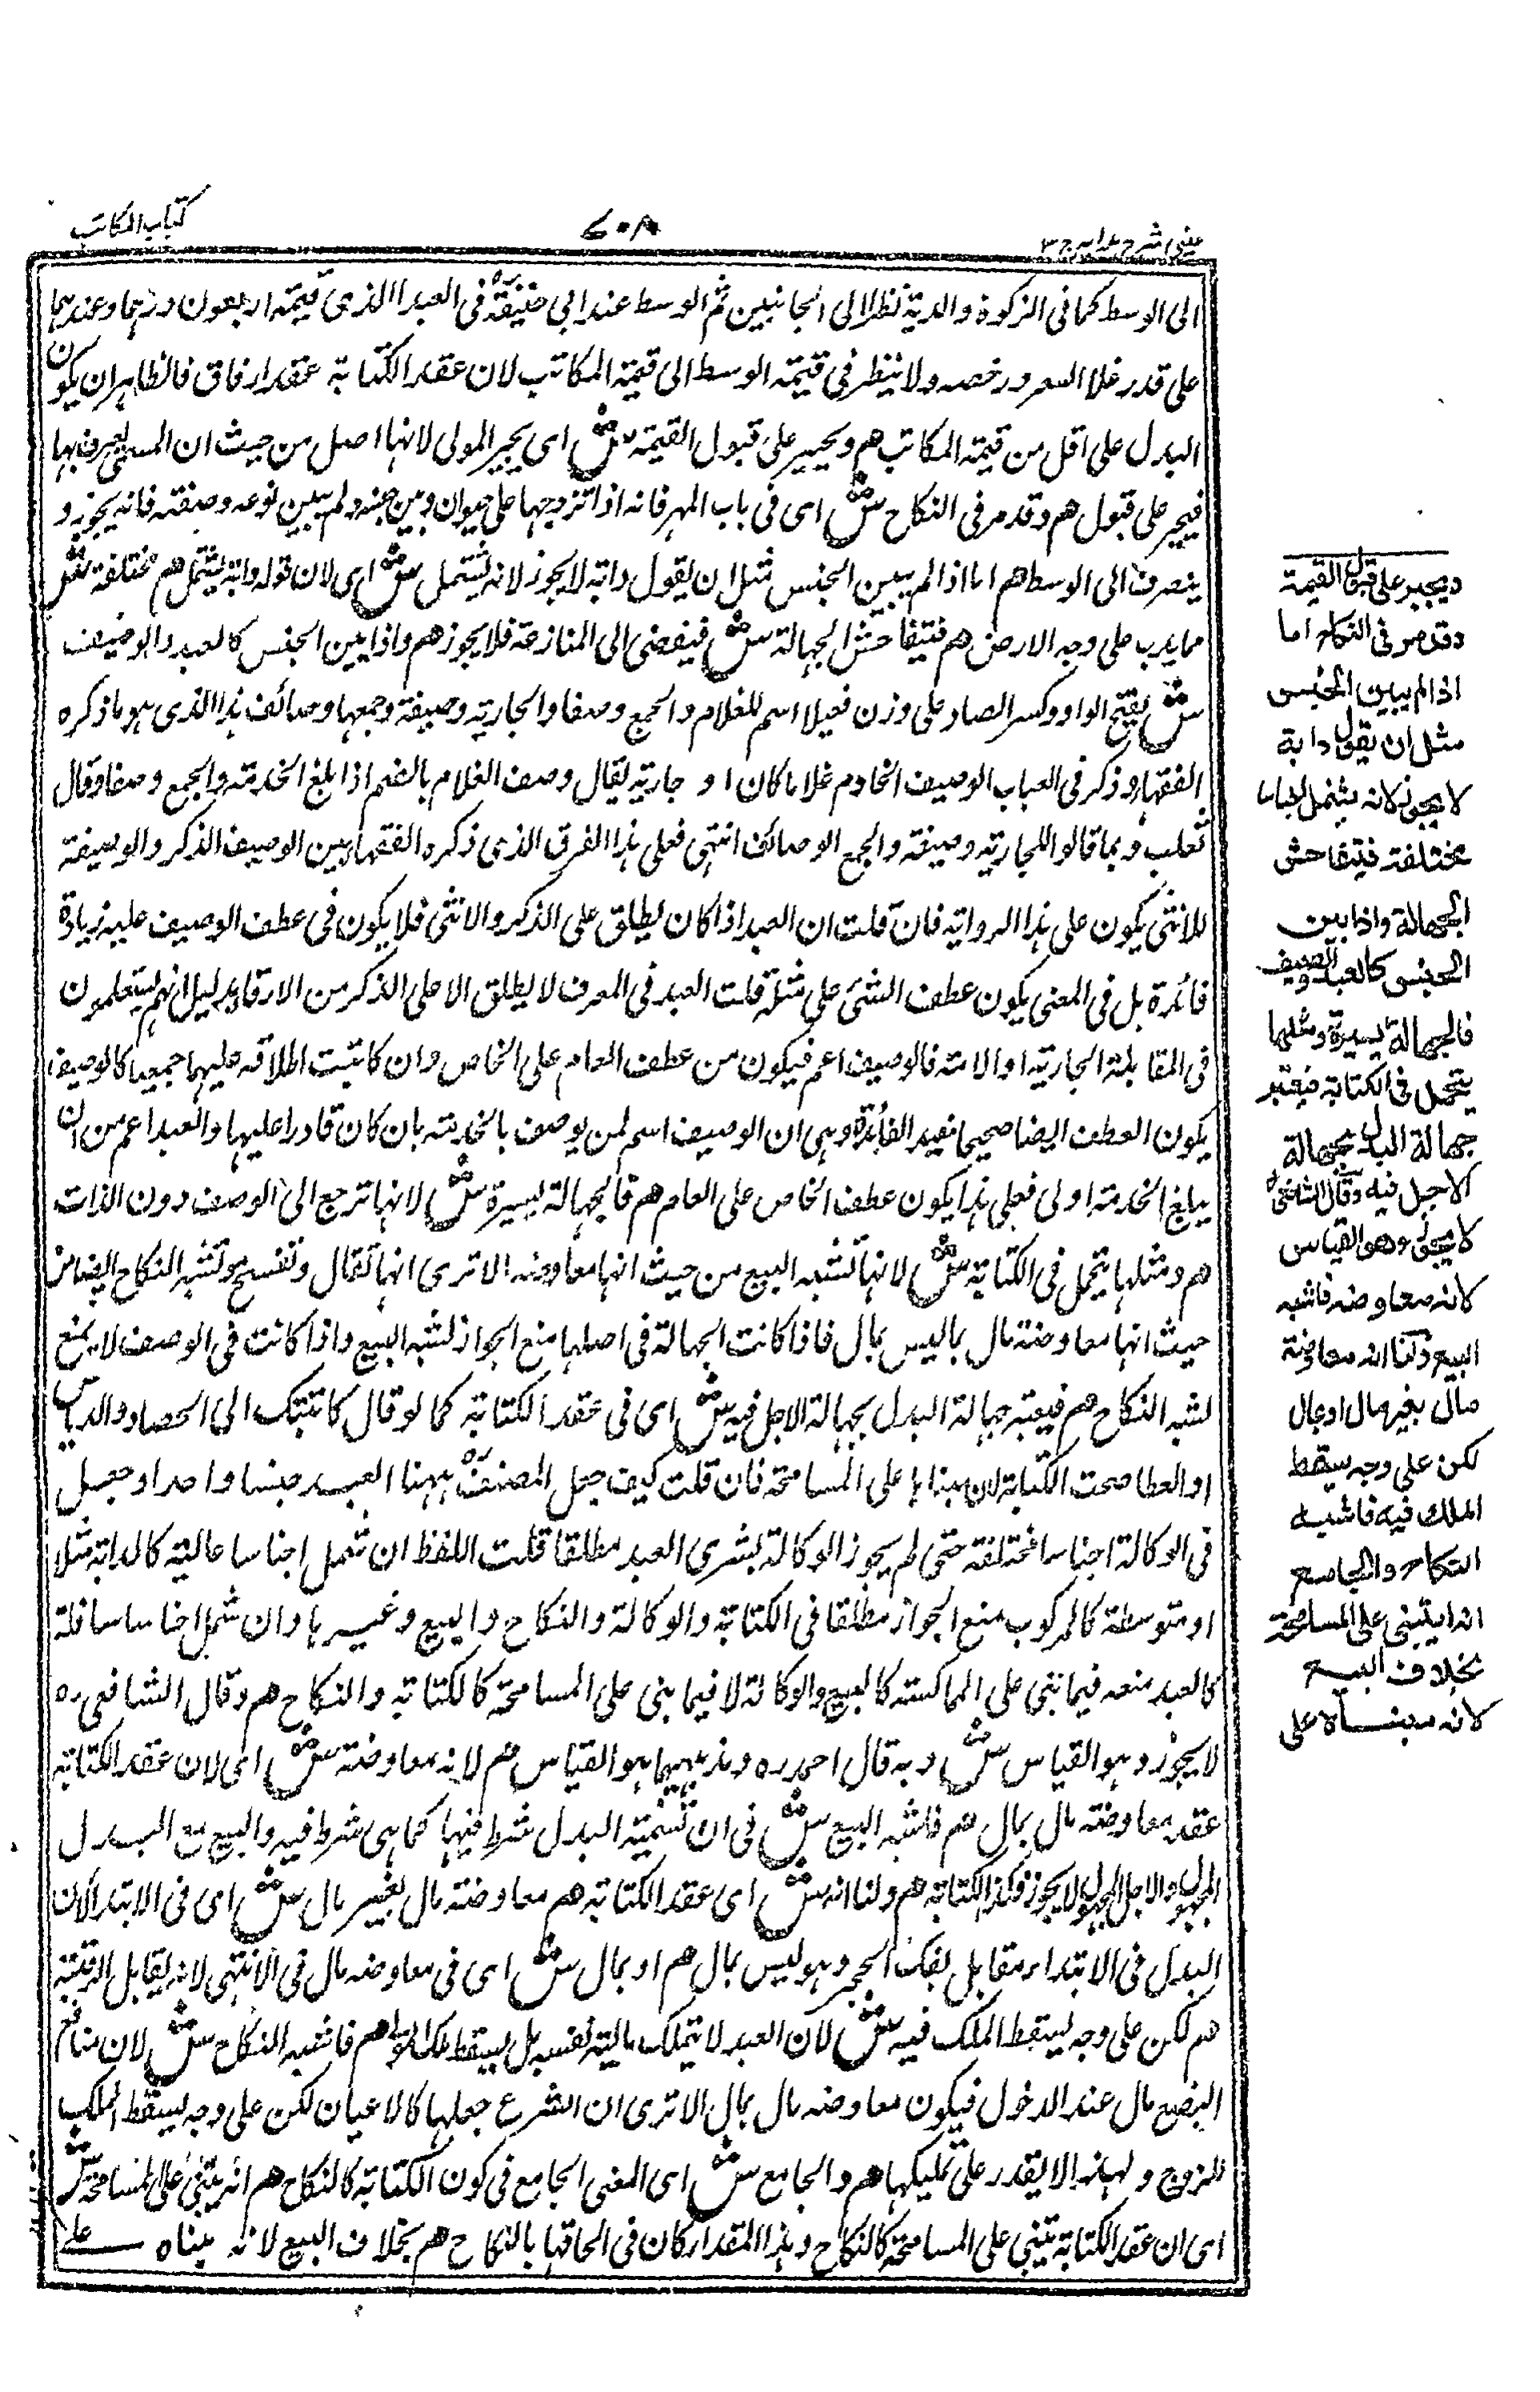 عينى شرح هدايه ج ٣
٧٠٨
كتاب المكاتب
الى الوسط كما فى الزكوة والدية نظرا الى الجانبين ثم الوسط عند ابى حنيفةؒ فى العبد الذى قيمته اربعون درهما وعندهما
على قدر غلا السعر ورخصه ولا ينظر فى قيمته الوسط الى قيمة المكاتب لان عقد الكتابة عقد ارفاق فالظاهر ان يكون
البدل على اقل من قيمة المكاتب هم ويجبر على قبول القيمة ش اى يجبر المولى لانها اصل من حيث ان المسمى يعرف بها
فيجبر على قبول هم وقد مر فى النكاح ش اى فى باب المهر فانه اذا تزوجها على حيوان وبين جنسه ولم يبين نوعه وصفته فانه يجوز و
ينصرف الى الوسط هم اما اذا لم يبين الجنس مثل ان يقول دابة لا يجوز لانه يشتمل ش اى لان قوله دابة يشتمل هم مختلفة ش
ما يدب على وجه الارض هم فتتفاحش الجهالة ش فيفضى الى المنازعة فلا يجوز هم واذا بين الجنس كالعبد والوصيف
ش بفتح الواو وكسر الصاد على وزن فعيلا اسم للغلام والجمع وصفا والجارية وصيفة وجمعها وصائف هذا الذى هو ما ذكره
الفقهاء وذكر فى العباب الوصيف الخادم غلاما كان او جارية يقال وصف الغلام بالضم اذا بلغ الخدمة والجمع وصفا وقال
ثعلب وبما قالوا للجارية وصيفة والجمع الوصائف انتهى فعلى هذا الفرق الذى ذكره الفقهاء بين الوصيف الذكر والوصيفة
للانثى يكون على هذا الرواية فان قلت ان العبد اذا كان يطلق على الذكر والانثى فلا يكون فى عطف الوصيف عليه زيادة
فائدة بل فى المعنى يكون عطف الشئ على مثله قلت العبد فى العرف لا يطلق الا على الذكر من الارقاء بدليل انهم يستعلمون
فى المقابلة الجارية او الامة فالوصيف اعم فيكون من عطف العام على الخاص وان كانت ثبت اطلاقه عليهما جميعا كالوصيف
يكون العطف ايضا صحيحا مفيد الفائدة وهى ان الوصيف اسم لمن يوصف بالخدمة بان كان قادرا عليها والعبد اعم من ان
يبلغ الخدمة اولى فعلى هذا يكون عطف الخاص على العام هم فالجهالة يسيرة ش لانها ترجع الى الوصف دون الذات
هم ومثلها يتحمل فى الكتابة ش لانها تشبه البيع من حيث انها معاوضة الا ترى انها تقال وتفسخ وتشبه النكاح ايضا من
حيث انها معاوضة مال بما ليس بمال فاذا كانت الجهالة فى اصلها منع الجواز لشبه البيع واذا كانت فى الوصف لا يمنع
لشبه النكاح هم فيعتبر جهالة البدل بجهالة الاجل فيه ش اى فى عقد الكتابة كما لو قال كاتبتك الى الحصاد والدياس
او العطا صحت الكتابة لان مبناها على المسامحة فان قلت كيف جعل المصنفؒ ههنا العبد جنسا واحدا وجعل
فى الوكالة اجناسا مختلفة حتى لم يجوز الوكالة بشرى العبد مطلقا قلت اللفظ ان شمل اجناسا عالية كالدابة مثلا
او متوسطة كالمركوب منع الجواز مطلقا فى الكتابة والوكالة والنكاح والبيع وغيرها وان شمل اجناسا سافلة
كالعبد منعه فيما بنى على المماكسة كالبيع والوكالة لا فيما بنى على المسامحة كالكتابة والنكاح هم وقال الشافعى ره
لا يجوز وهو القياس ش وبه قال احمد ره ومذهبهما هو القياس هم لانه معاوضة ش اى لان عقد الكتابة
عقد معاوضة مال بمال هم فاشبه البيع ش فى ان تسمية البدل شرط فيها كما هى شرط فيه والبيع مع البدل
المجهول والاجل المجهول لا يجوز فكذا الكتابة هم ولنا انه ش اى عقد الكتابة هم معاوضة مال بغير مال ش اى فى الابتداء لان
البدل فى الابتداء مقابل بفك الحجر وهو ليس بمال هم او بمال ش اى فى معاوضة مال فى الانتهى لانه يقابل الرقبة
هم لكن على وجه يسقط الملك فيه ش لان العبد لا يتملك مالية نفسه بل يسقط ملك المولى هم فاشبه النكاح ش لان منافع
البضع مال عند الدخول فيكون معاوضة مال بمال الا ترى ان الشرع جعلها كالاعيان لكن على وجه يسقط الملك
للزوج ولهذا لا يقدر على تمليكها هم والجامع ش اى المعنى الجامع فى كون الكتابة كالنكاح هم انه يبتنى على المسامحة ش
اى ان عقد الكتابة يبتنى على المسامحة كالنكاح وهذا المقدار كان فى الحاقها بالنكاح هم بخلاف البيع لانه مبناه على
ويجبر على قبول القيمة
وقد مر فى النكاح اما
اذا لم يبين الجنس
مثل ان يقول دابة
لا يجوز لانه يشتمل اجناسا
مختلفة فتتفاحش
الجهالة واذا بين
الجنس كالعبد والوصيف
فالجهالة يسيرة ومثلها
يتحمل فى الكتابة فيعتبر
جهالة البدل بجهالة
الاجل فيه وقال الشافعىؒ
لا يجوز وهو القياس
لانه معاوضة فاشبه
البيع ولنا انه معاوضة
مال بغير مال او بمال
لكن على وجه يسقط
الملك فيه فاشبه
النكاح والجامع
انه يبتنى على المسامحة
بخلاف البيع
لانه مبناه على